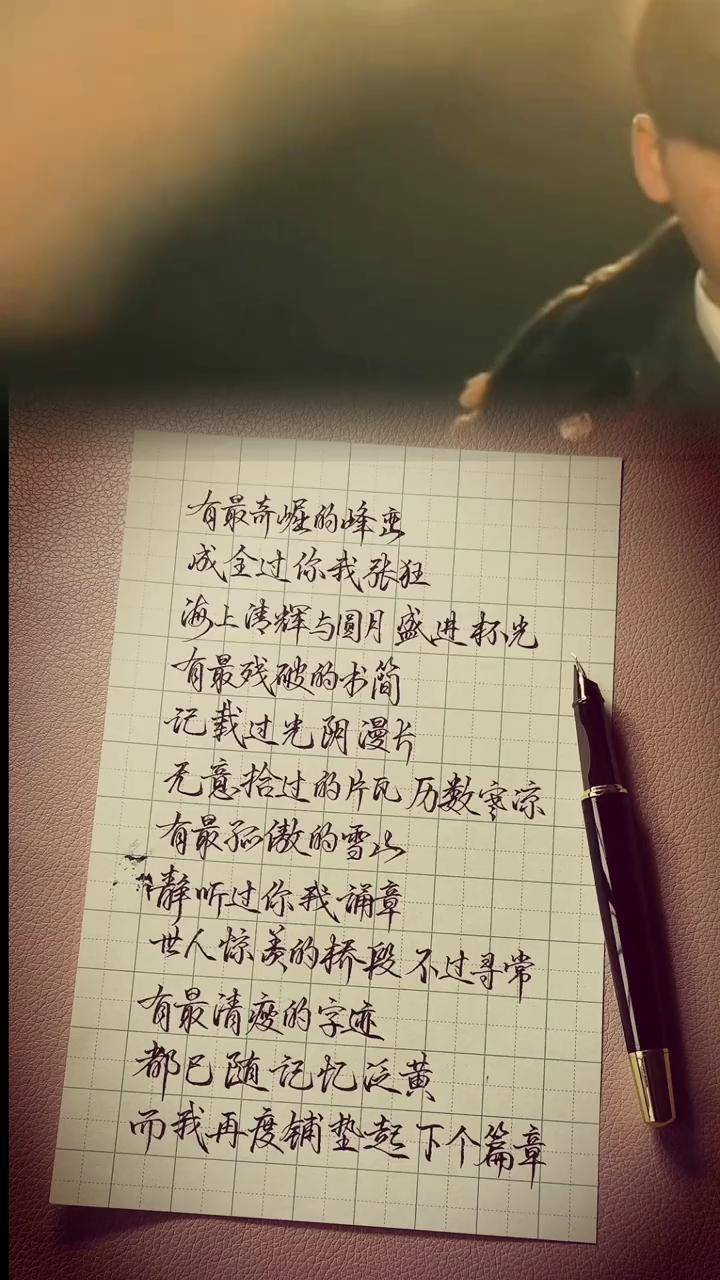 有最奇崛的峰峦
成全过你我张狂
海上清辉与圆月盛进杯光
有最残破的书简
记载过光阴漫长
无意拾过的片瓦历数寒凉
有最孤傲的雪山
静听过你我诵章
世人惊羡的桥段不过寻常
有最清瘦的字迹
都已随记忆泛黄
而我再度铺垫起下个篇章